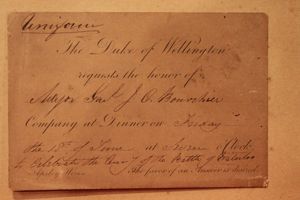 Uniform
The Duke of Wellington
requests the honor of
Major Genl J. C. Bourchier
Company at Dinner on Friday
the 18th of June at Seven o'Clock
to Celebrate the of the Battle of Waterloo
Apsley House The favor of an Answer is desired